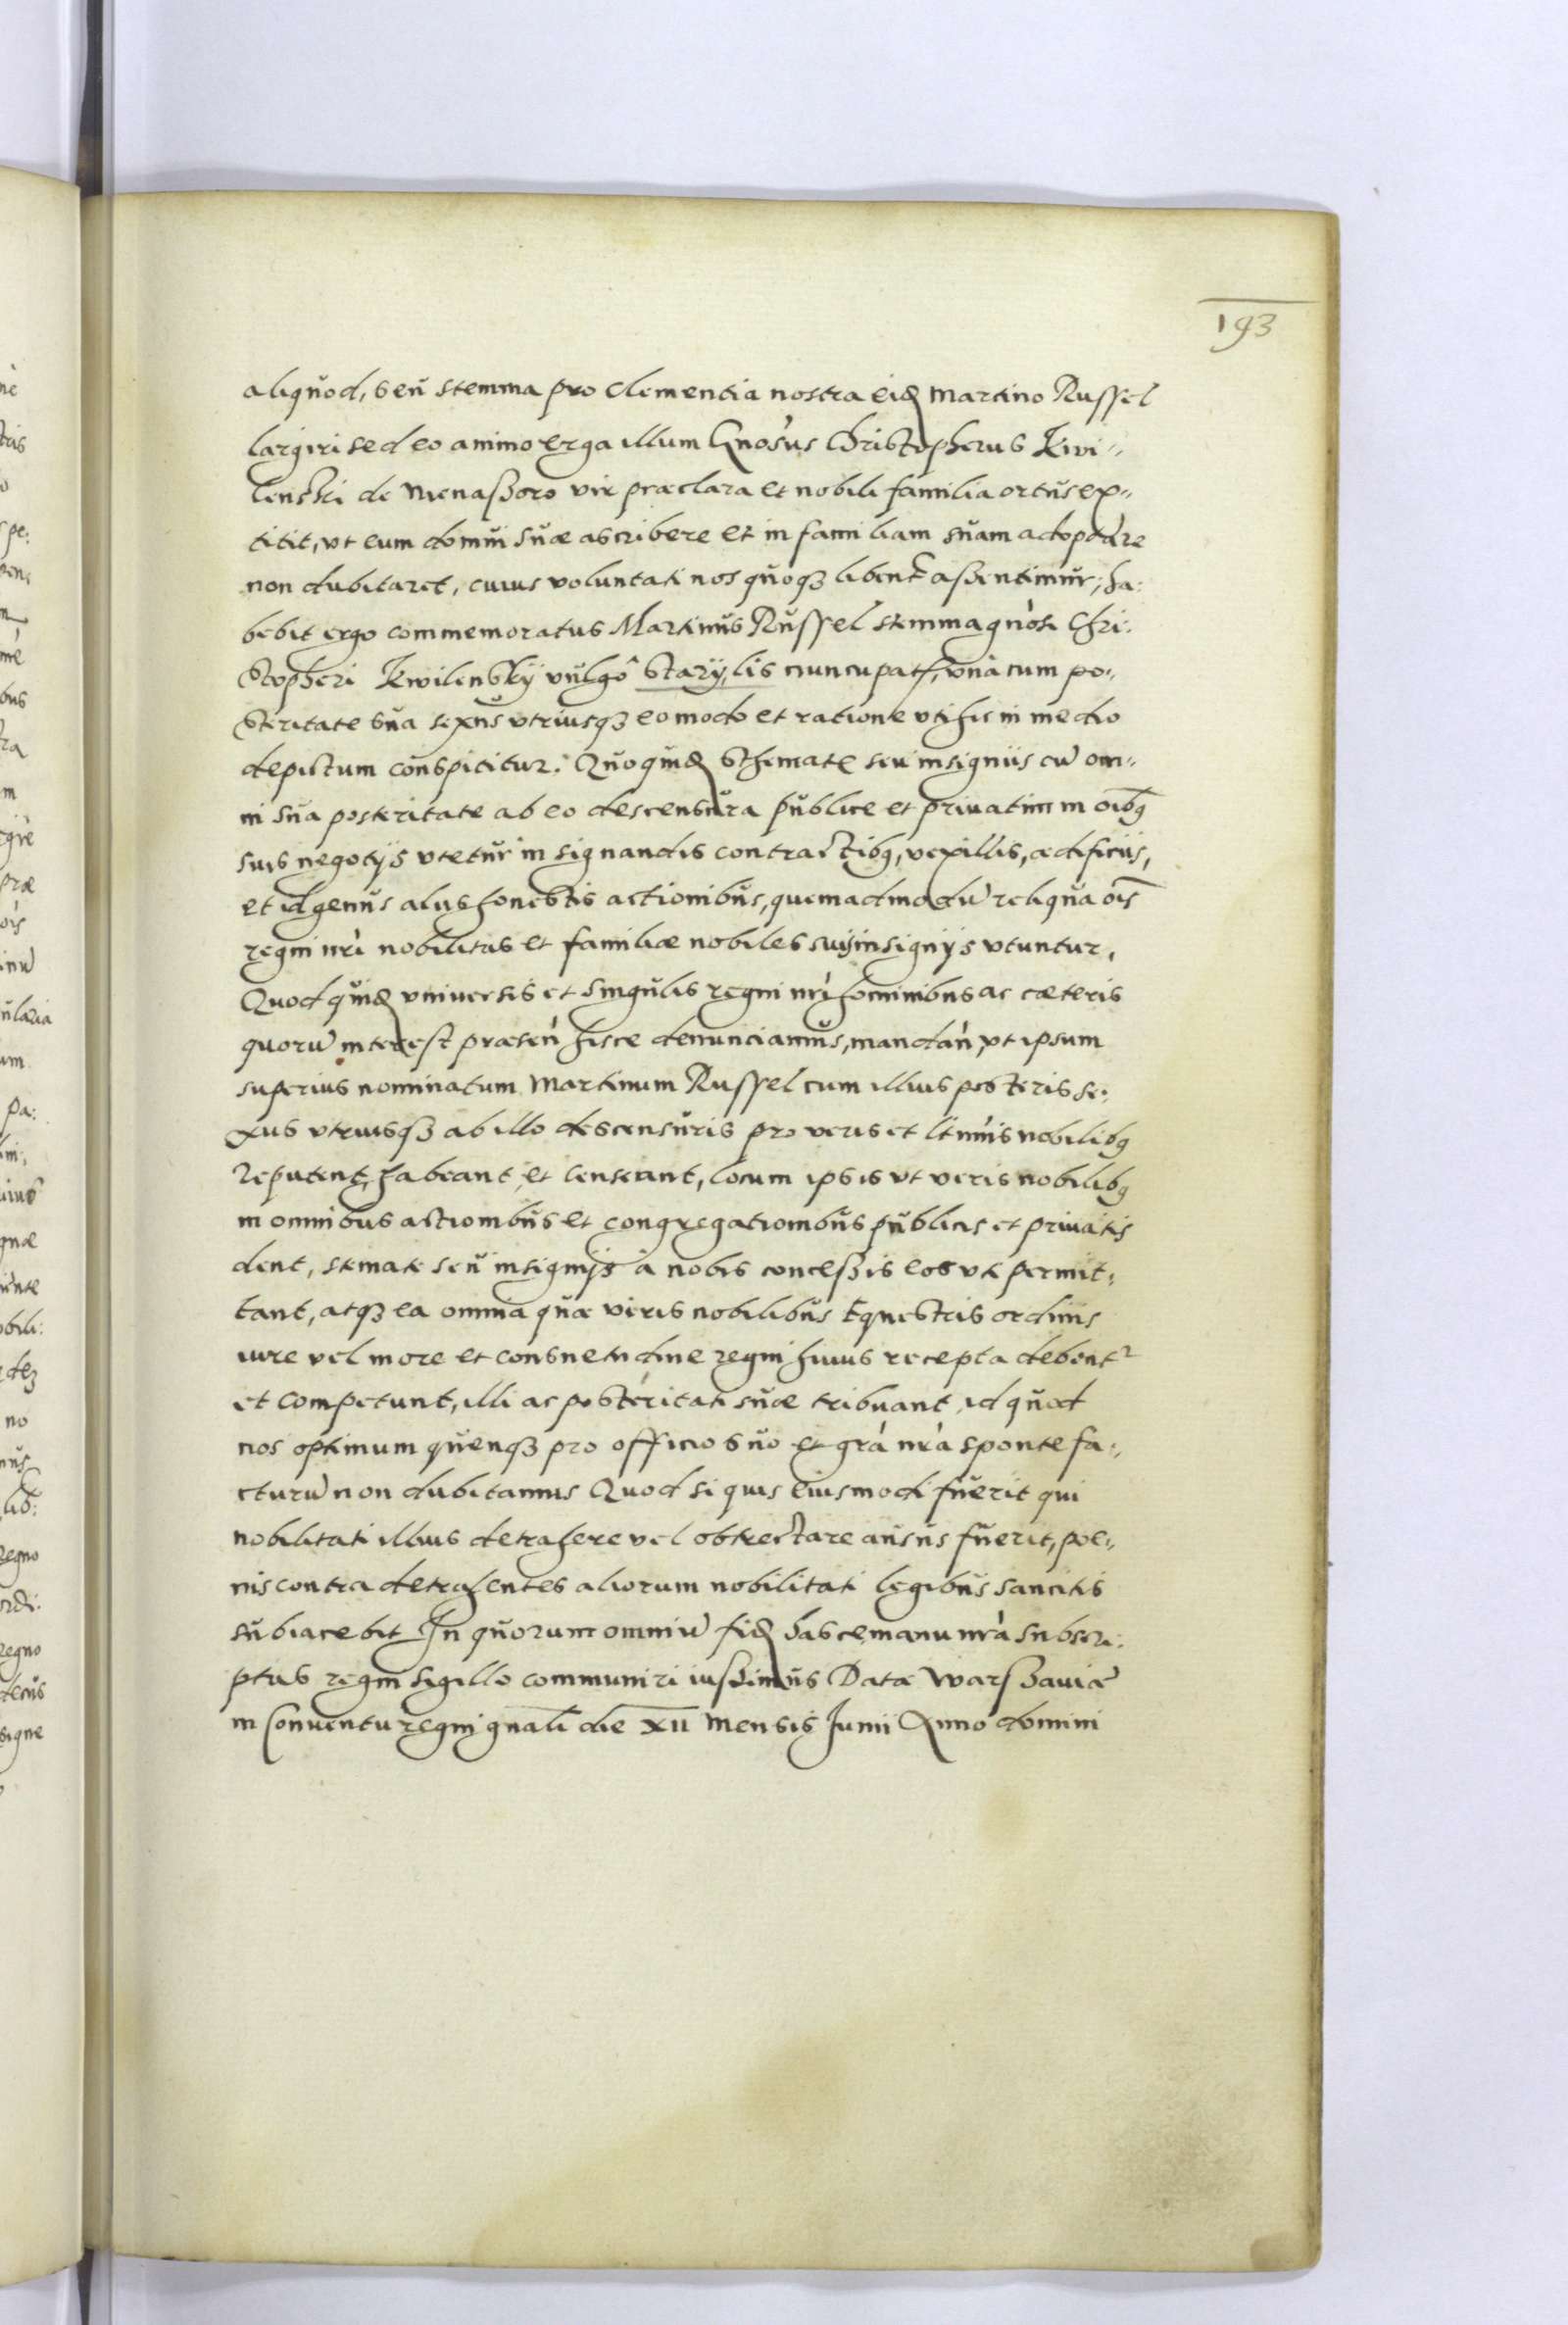 193
aliquod, seu stemma pro Clementia nostra eid Martino Russel
largiri sed eo animo erga illum Gnosus Christopherus Kwi-
lenski de Menaßoro vir praeclara et nobili familia ortus ex-
titit, vt eum domui suae ascribere et in familiam suam adoptare
non dubitaret, cuius voluntati nos quoqz libent aßentimur, ha:
bebit ergo commemoratus Martinus Russel stemma gnosi Chri:
stopheri Kwilensky vulgo Stary lis nuncupat, vna cum po-
steritate sua sexus vtriusqz eo modo et ratione vti hic in medio
depictum conspicitur. Quo quid Schemate seu insigniis cu om-
ni sua posteritate ab eo descensura publice et priuatim in oibq
suis negotijs vtetur in signandis contractibq, vexillis, aedificiis,
et id genus aliis honestis actionibus, quemadmodu reliqua ois
regni nri nobilitas et familiae nobiles suis insignijs vtuntur.
Quod quid vniuersis et singulis regni nri hominibus ac caeteris
quoru interest praesen hisce denunciamus, mandan, vt ipsum
superius nominatum Martinum Russel cum illius posteris se:
xus vtriusqz ab illo descensuris pro veris et ltimis nobilibq
reputent, habeant et censeant, locum ipsis vt veris nobilibq
in omnibus actionibus et congregationibus publicis et priuatis
dent, stemate seu insignijs a nobis conceßis eos vti permit:
tant, atqz ea omnia quae veris nobilibus Equestris ordinis
iure vel more et consuetudine regni huius recepta debent
et competunt, illi ac posteritati suae tribuant id quod
nos optimum quenqz pro officio suo et gra nra sponte fa:
cturu non dubitamus Quod si quis eiusmodi fuerit qui
nobilitati illius detrahere vel obtrectare ausus fuerit, poe-
nis contra detrahentes aliorum nobilitati legibus sancitis
subiacebit In quorum omniu fid hasce manu nra subscri:
ptas regni sigillo communiri iußimus Datae Warßauiae
in Conuentu regni gnali die XII Mensis Junii Anno domini